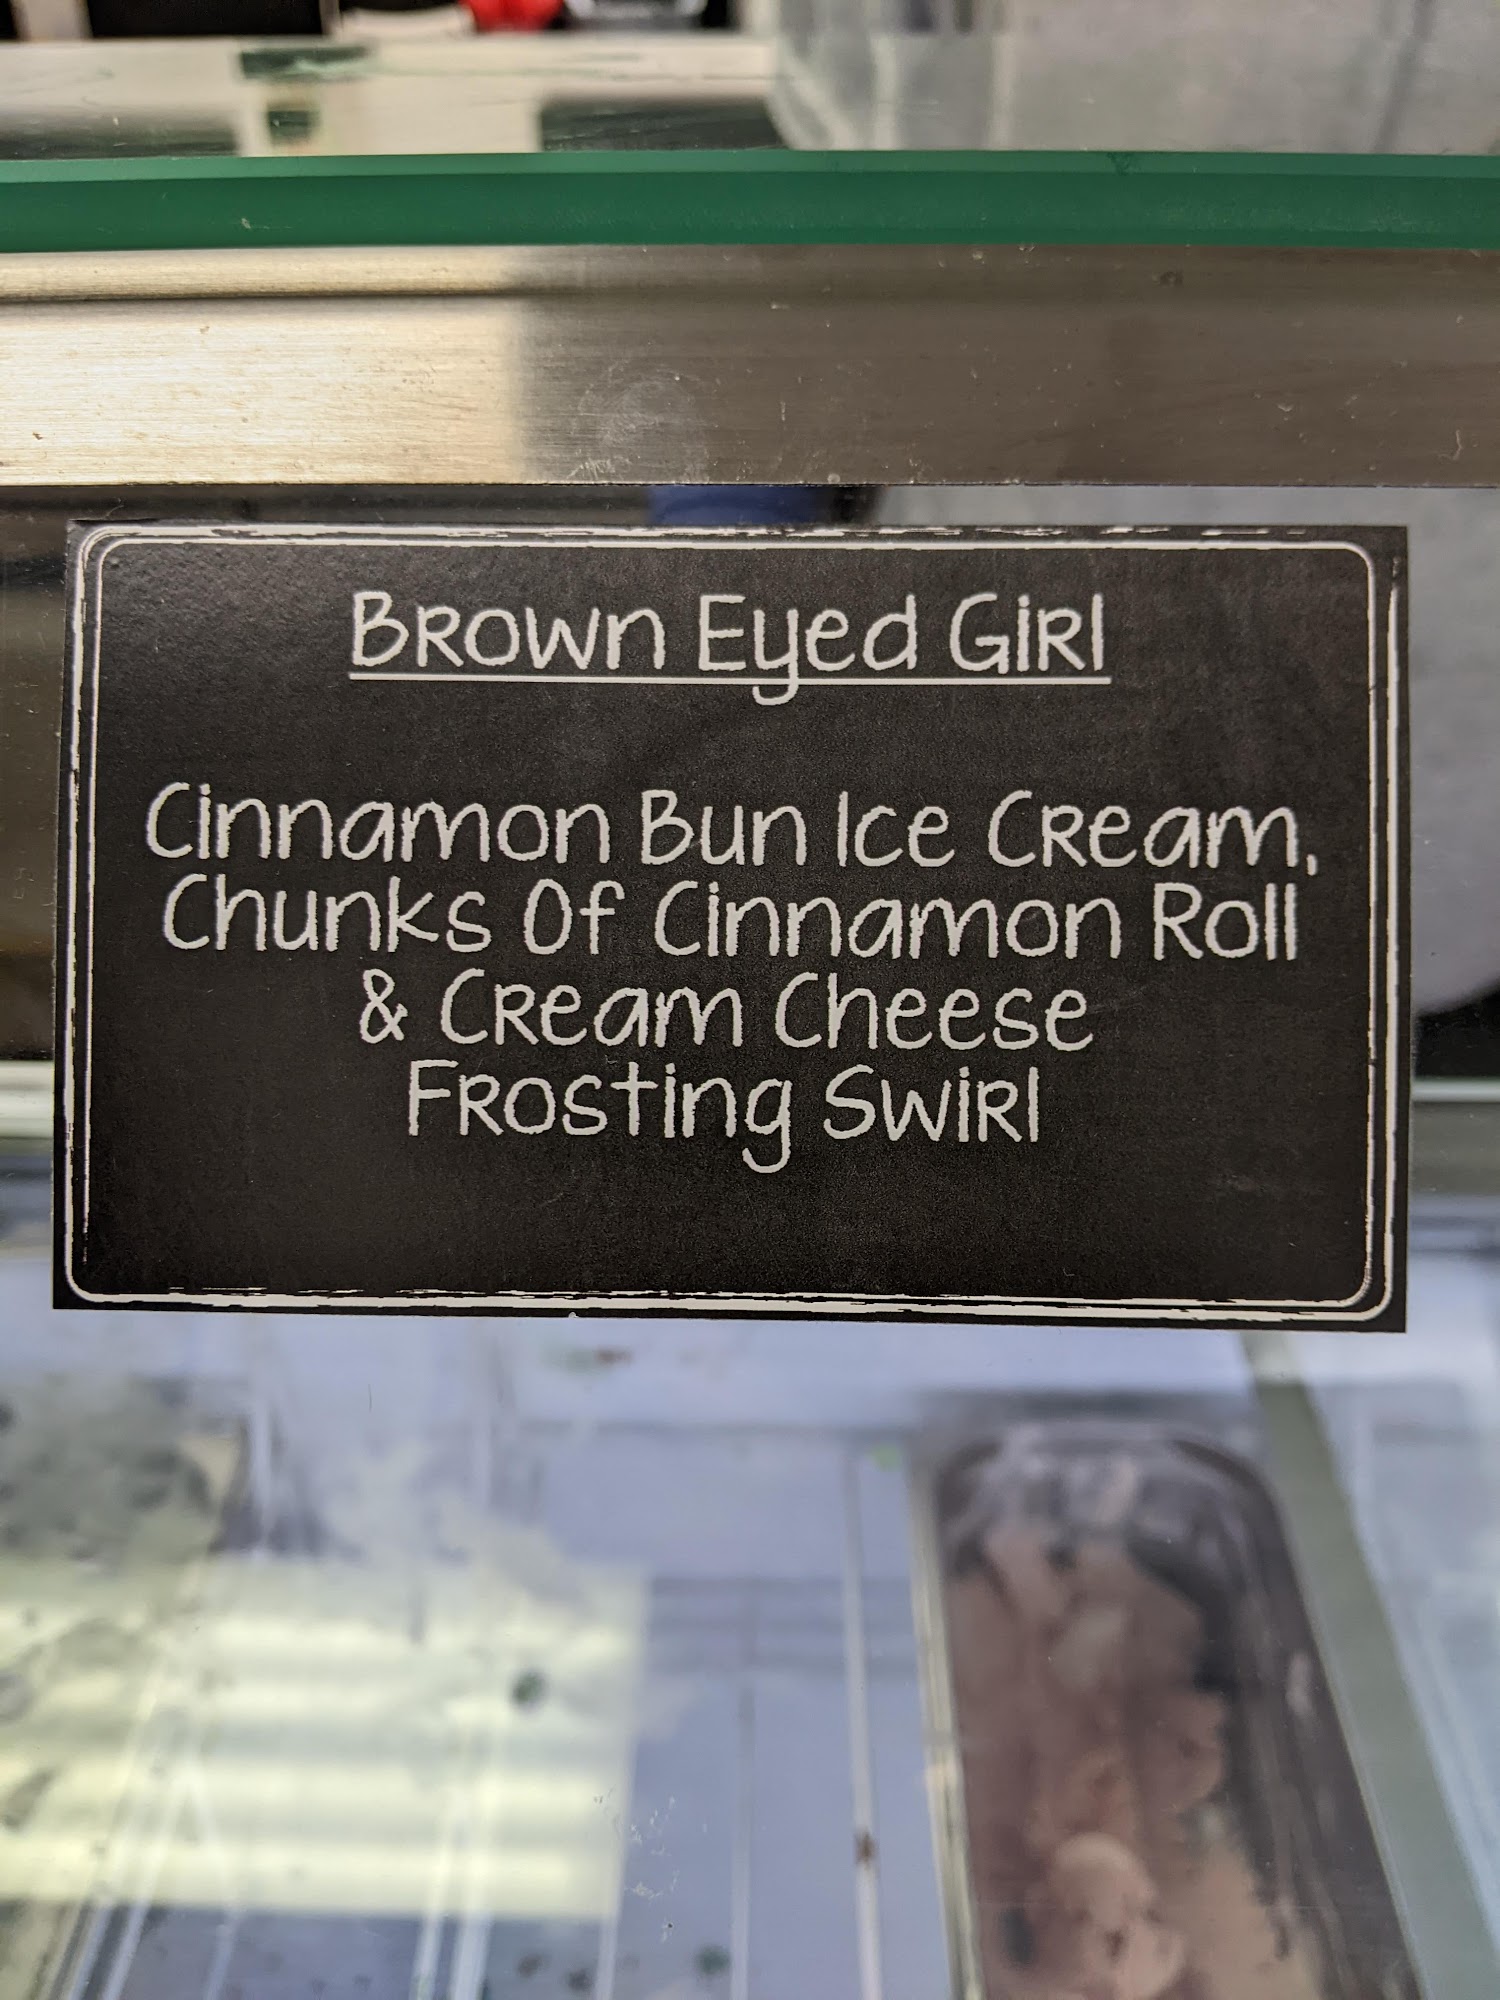 Brown Eyed Girl
Cinnamon Bun Ice Cream,
Chunks Of Cinnamon Roll
& Cream Cheese
Frosting Swirl